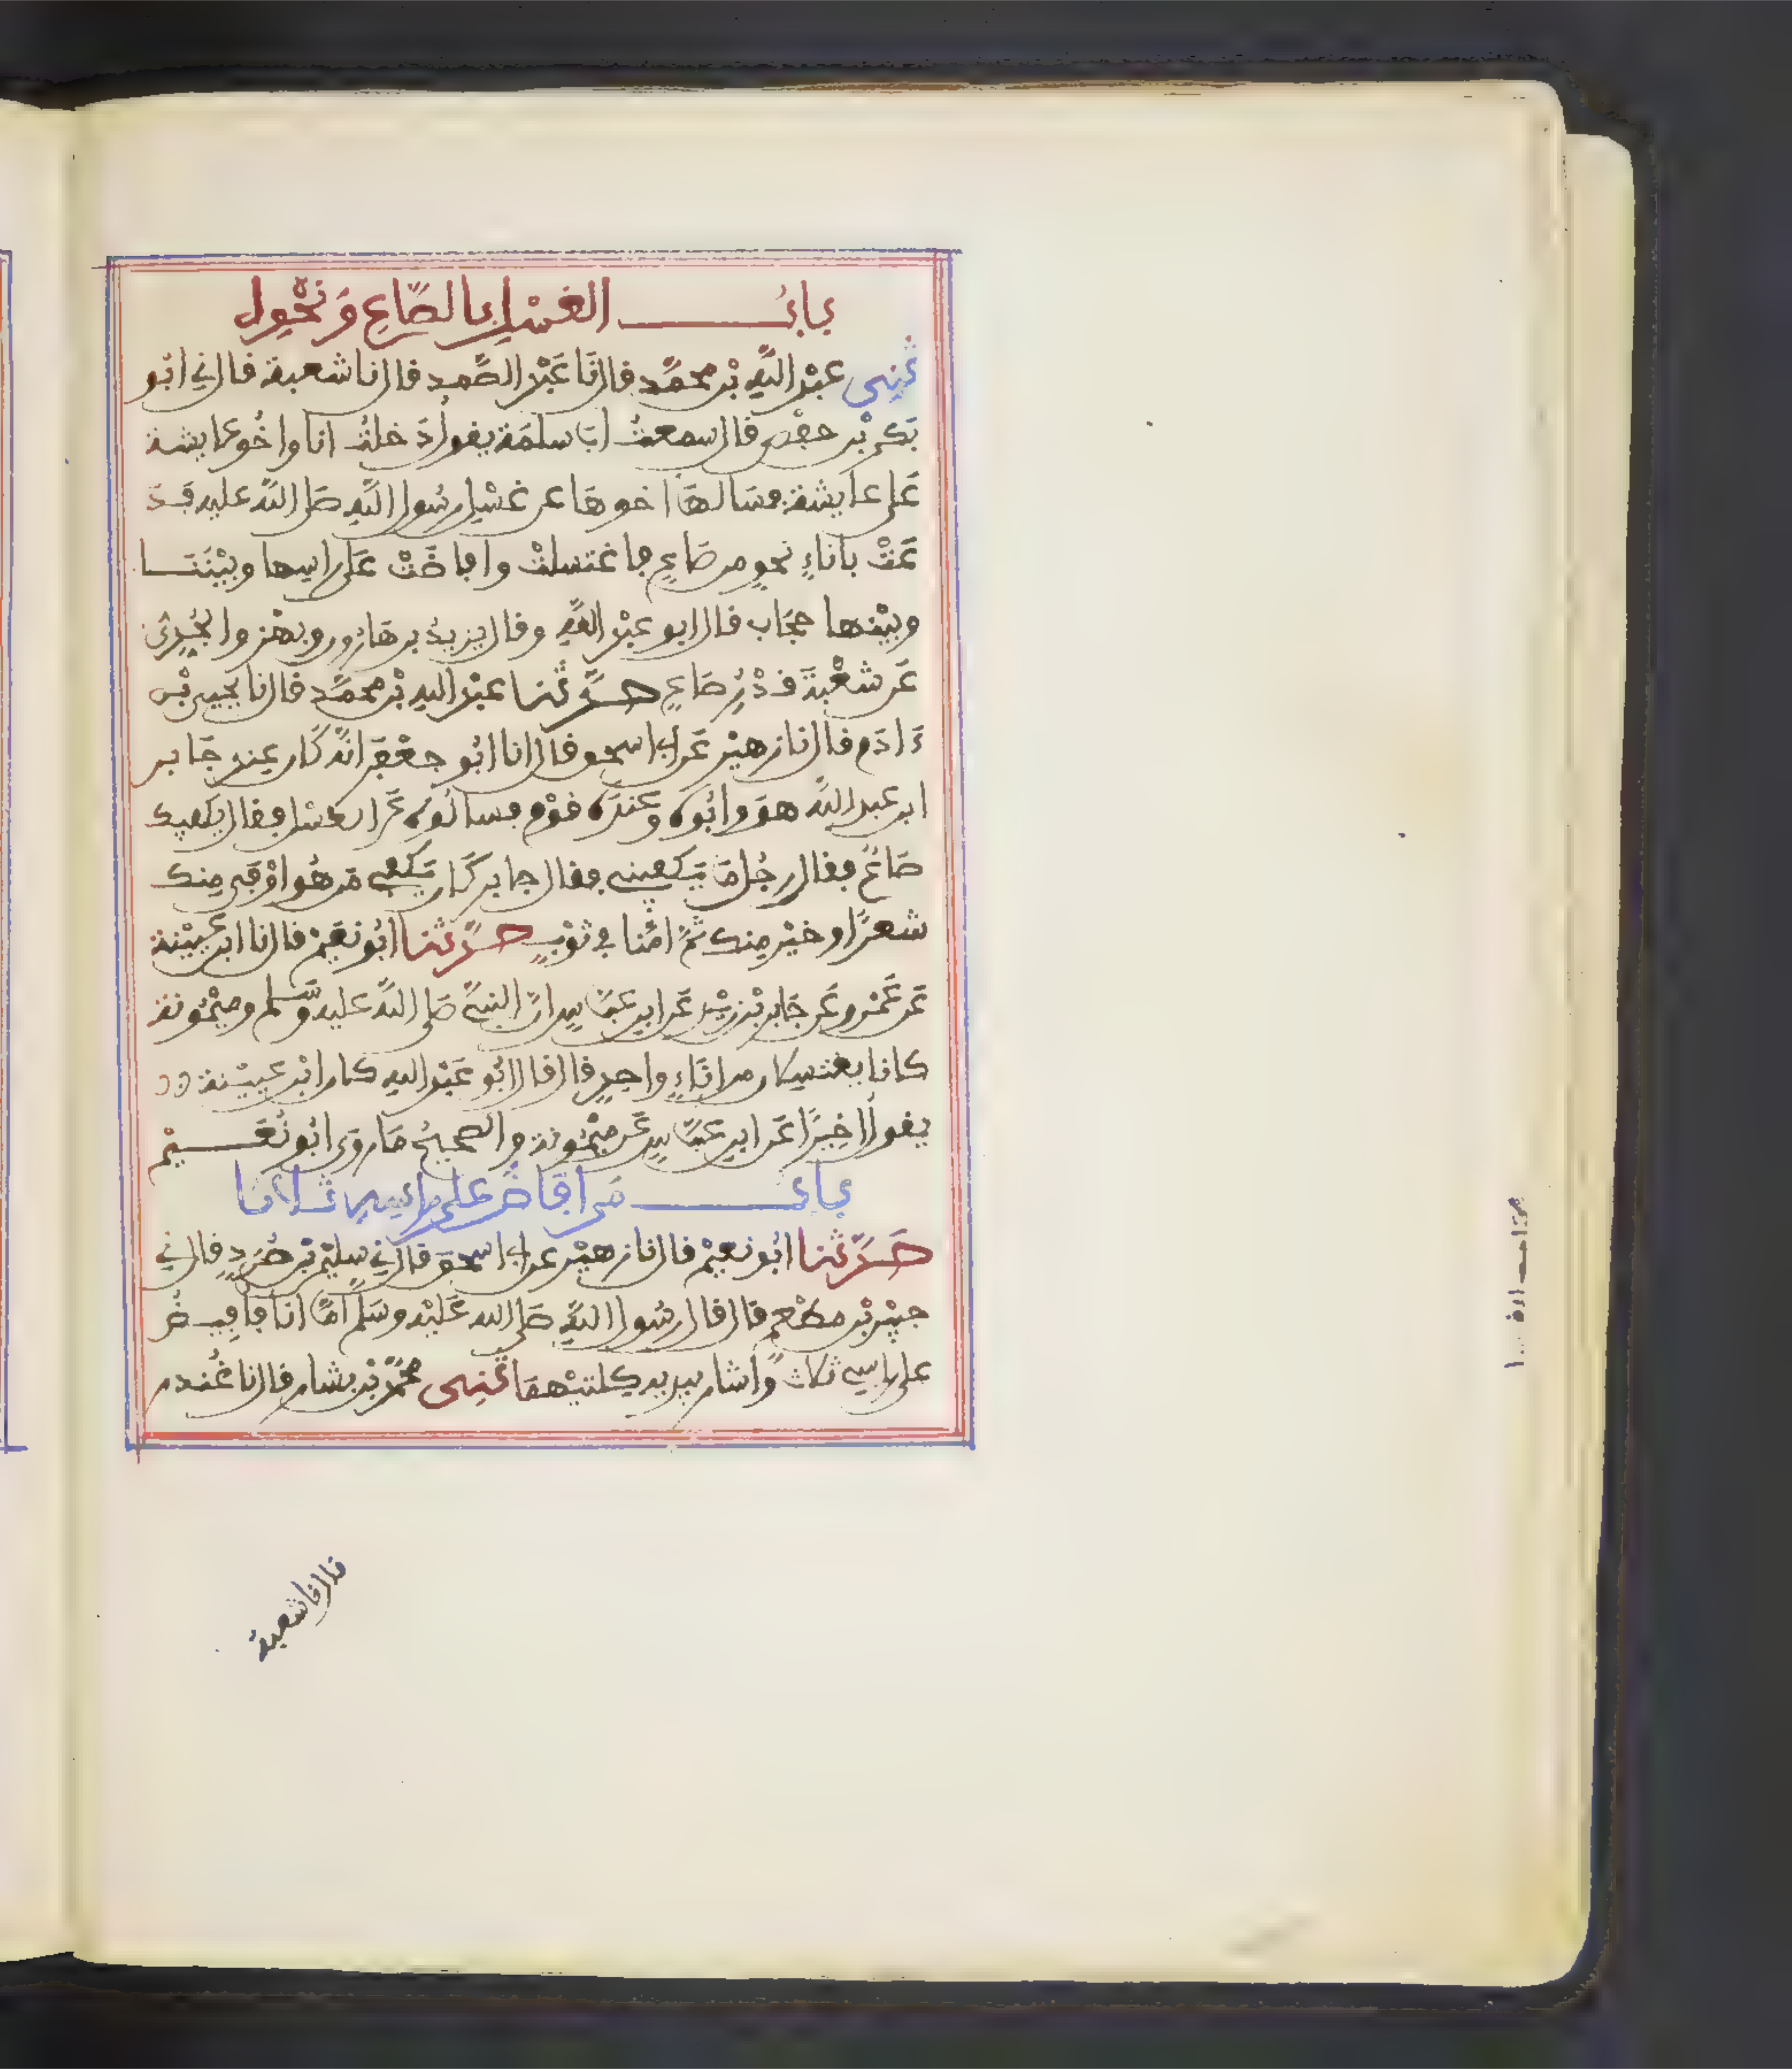 بابُ الغسل بالصّاع ونحوه
ثنى عبد اللّه بن محمّد قال نا عَبْد الصّمد قال نا شعبة قال ني ابُو
بَكر بْن حفْص قال سمعتُ ابَا سلمَة يقول دَخلتُ انا واخُو عايشة
عَلى عايشة فسَالهَا اخوهَا عن غسْل رسُول اللّه صَلى اللّه عليه فَدَ
عَتْ باناءٍ نحوٍ من صَاعٍ فاغتسلتْ وافاضَتْ عَلى راسِها وبيْنَنَا
وبيْنها حجَاب قال ابو عبْد اللّه وقال يزيدُ بن هَارُون وبهْز والجُدِىّ
عَن شعْبَةَ قدْرِ صَاعٍ حدّثنا عبْد الله بْن محمّد قال نا يحيى بْن
ءَادَم قال نا زهيْر عَن ابى اسحو قال نا ابُو جعْفَر انّه كَان عِند جَابر
ابن عبد اللّه هوَ وابُوه وعندَه قوْم فسالُوه عَن الغسْل فقال يكفيك
صَاعٌ فقال رجُل مَا يَكفينى فقال جابر كَان يَكفى مَن هُو اوْفى منك
شعرًا وخيْر مِنك ثمّ امّنا في ثوْبٍ حدّثنا ابُو نعَيْم قال نا ابن عُيَيْنة
عَن عَمْرو عَن جَابر بْن زيْد عَن ابن عبّاسٍ انّ النبىّ صَلى اللّه عليه وسَّلم وميْمُونة
كانا يغتسِلان من انَاءٍ واحِدٍ قال قال ابُو عَبْد الله كان ابْن عيَيْنة
يقول اخِيرًا عَن ابن عبّاسٍ عَن ميْمُونة والصحيحُ مَا روَى ابُو نُعَيْم
باب مَن افَاضَ على راسِه ثلاثا
حَدّثنا ابُو نعيْم قال نا زهيْر عن ابى اسحق قال ني سليْمٰن بْن صُرَدٍ قال ني
جبيْر بْن مطْعمٍ قال قال رسُول اللّه صَلى الله عَليْه وسَلم امّا انا فاُفِيضُ
على راسِي ثلاثًا واشار بيديه كلتيْهمَا ثنى محمّد بْن بشار قال نا غُندر
قال نا شعبة